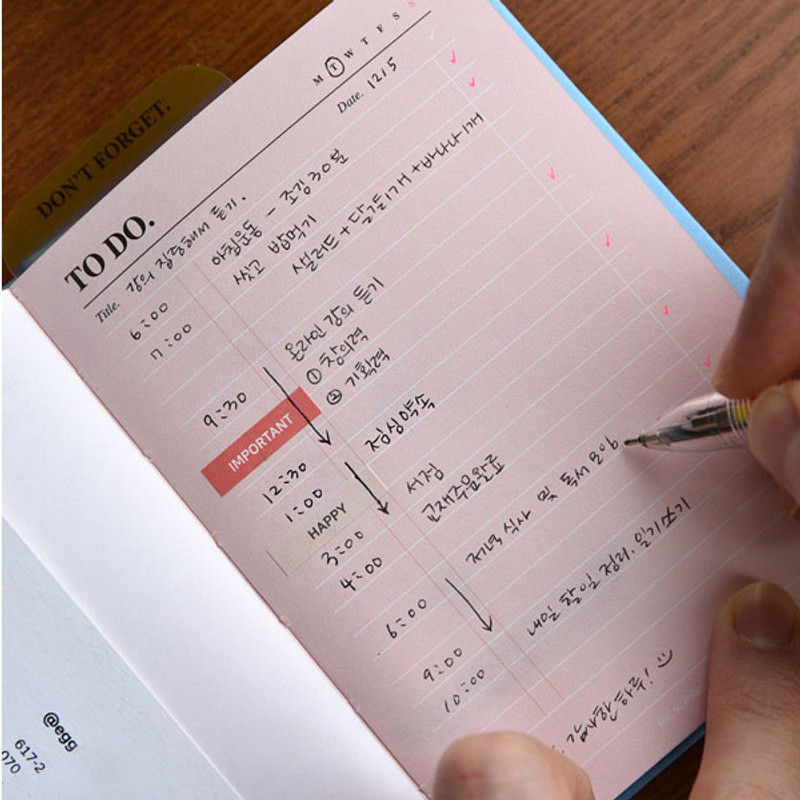 DON'T FORGET.
M T W T F S S
Date. 12/5
TO DO.
Title. 강의 집중해서 듣기.
6:00 아침운동 - 조깅 30분
7:00 씻고 밥먹기
샐러드 + 달걀1개 + 바나나1개
9:30 온라인 강의 듣기
① 창의력
② 기획력
IMPORTANT
12:30 점심약속
1:00
HAPPY
3:00 서점
4:00 교재주문완료
6:00 저녁식사 및 독서모임
9:00
10:00 내일 할일 정리. 일기쓰기
감사한 하루! :)
@egg
617-2
070